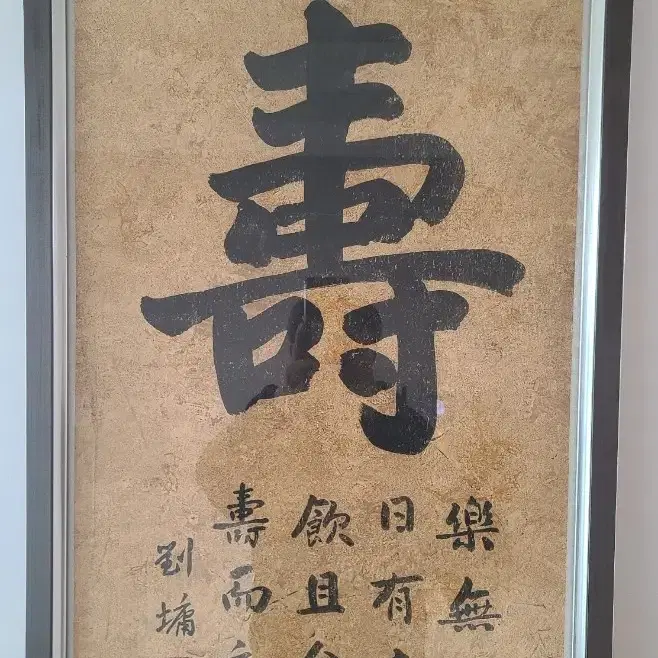 壽
樂無
日有
飲且
壽而
劉墉